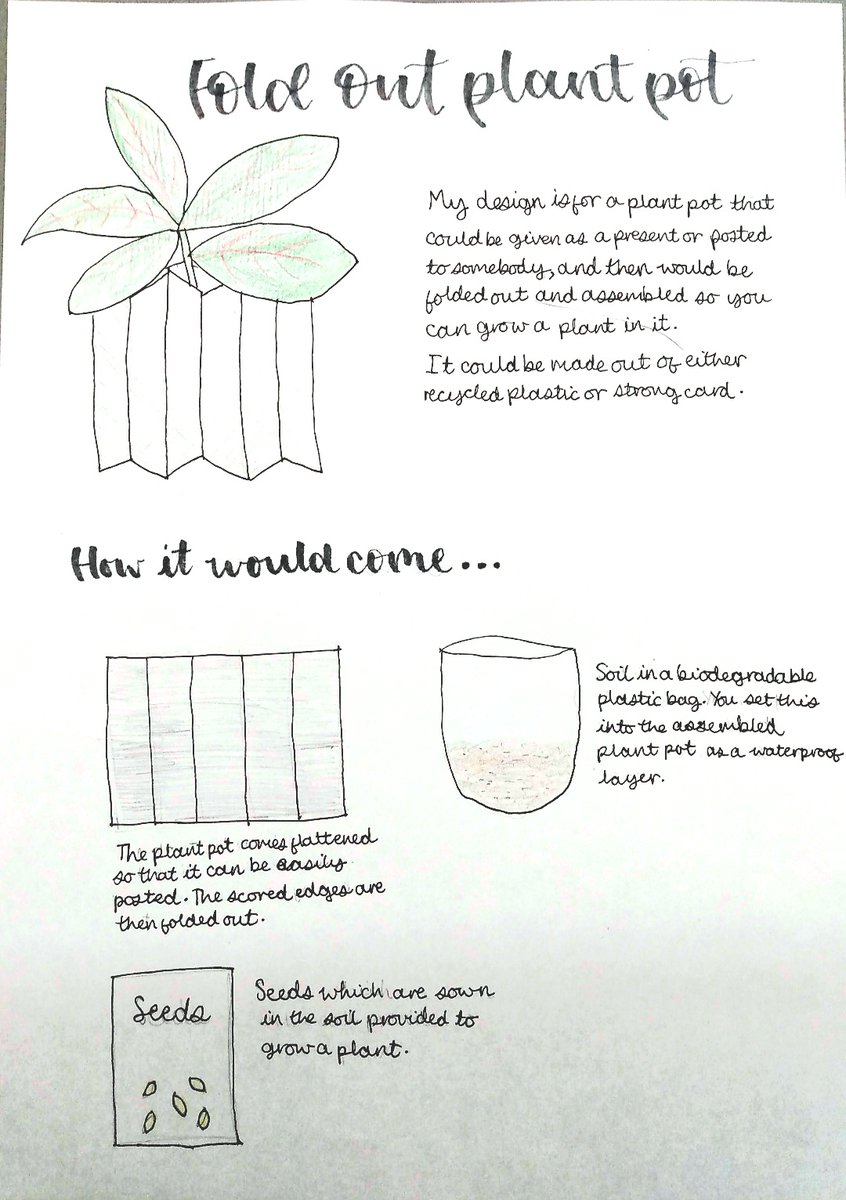 Fold out plant pot
My design is for a plant pot that
could be given as a present or posted
to somebody, and then would be
folded out and assembled so you
can grow a plant in it.
It could be made out of either
recycled plastic or strong card.
How it would come...
Soil in a biodegradable
plastic bag. You set this
into the assembled
plant pot as a waterproof
layer.
The plant pot comes flattened
so that it can be easily
posted. The scored edges are
then folded out.
Seeds
Seeds which are sown
in the soil provided to
grow a plant.